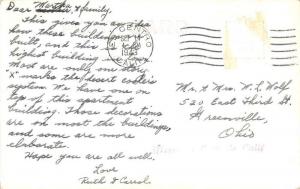 Dear Martha & family,
This gives you an idea
how these buildings are
built, and this is
highest building
Most are only one story
"X" marks the desert cooler
system. We have one on
top of this apartment
building. Those decorations
are on most the buildings,
and some are more
elaborate.
Hope you are all well.
Love
Ruth & Carrol.
EL CENTRO
CALIF.
Mr. & Mrs. W. L. Wolf
520 East Third St.
Greenville,
Ohio